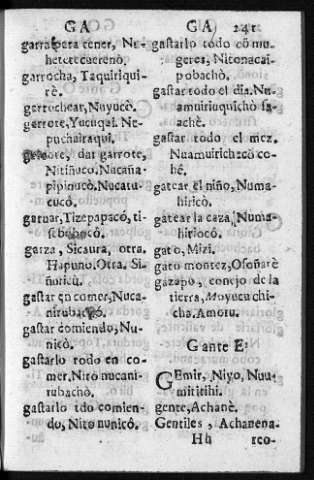 GA
garrapera tener, Ne-
hetetecuerenò.
garrocha, Taquiriqui-
rè.
garrochear, Nuyucè.
garrote, Yucuqui. Ne-
puchairaqui.
garrote, dar garrote,
Nitiñuco. Nucaña-
pipinucò. Nucatu-
cucò.
garuar, Tizepapacó, ti-
garza, Sicaura, otra.
Hapuno. Otra. Si-
gastar en comer, Nuca-
nirubacò.
gastar comiendo, Nu-
nicò.
gastarlo todo en co-
mer, Nito nucani-
rubachò.
gastarlo tdo comien-
do, Nito nunicó.
GA 241
gastarlo todo cõ mu-
geres, Nitonacai-
pobachò.
gastar todo el dia. Nu-
amuiriuquichò ca-
achè.
gastar todo el mez.
Nuamuirichicò co-
hé.
gatear el niño, Numa-
hiricò.
gatear la caza, Numa-
hiriocò.
gato, Mizi.
gato montez, Osoñarè
gazapo, conejo de la
tierra, Moyucuchi-
cha. Amotu.
Gante E:
GEmir, Niyo, Nuu-
mititihi.
gente, Achanè.
Gentiles, Achanena-
Hh rco-